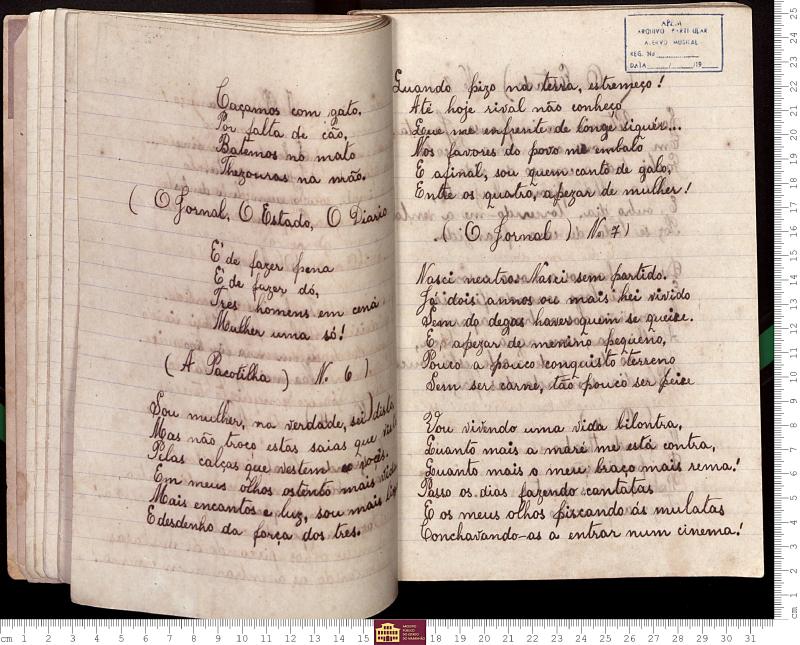 Caçamos com gato.
Por falta de cão,
Batemos no mato
Thezouras na mão.
( O Jornal, O Estado, O Diario
E' de fazer pena
E' de fazer dó,
Tres homens em cena
Mulher uma só!
( A Pacotilha ) N. 6 )
Sou mulher, na verdade, sei disto
Mas não troco estas saias que
Pelas calças que vestem vocês.
Em meus olhos ostento mais
Mais encantos e luz, sou mais
E desdenho da força dos tres.
APEM
ARQUIVO PARTICULAR
ACERVO MUSICAL
REG. No
DATA / /19
Quando pizo na terra, estremeço!
Até hoje rival não conheço
Que me enfrente de longe siquér...
Nos favores do povo me embalo
E afinal, sou quem canta de galo,
Entre os quatro, apezar de mulher!
( O Jornal ) N. 7)
Nasci neutro. Nasci sem partido.
Ja dois annos ou mais hei vivido
Sem do degas haver quem se queixe.
E apezar de menino pequeno,
Pouco a pouco conquisto terreno
Sem ser carne, tão pouco ser peixe
Vou vivendo uma vida bilontra,
Quanto mais a maré me está contra,
Quanto mais o meu braço mais rema!
Passo os dias fazendo cantatas
E os meus olhos piscando ás mulatas
Conchavando-as a entrar num cinema!
ARQUIVO
PÚBLICO
DO ESTADO
DO MARANHÃO
cm 1 2 3 4 5 6 7 8 9 10 11 12 13 14 15 18 19 20 21 22 23 24 25 26 27 28 29 30 31
cm 1 2 3 4 5 6 7 8 9 10 11 12 13 14 15 16 17 18 19 20 21 22 23 24 25